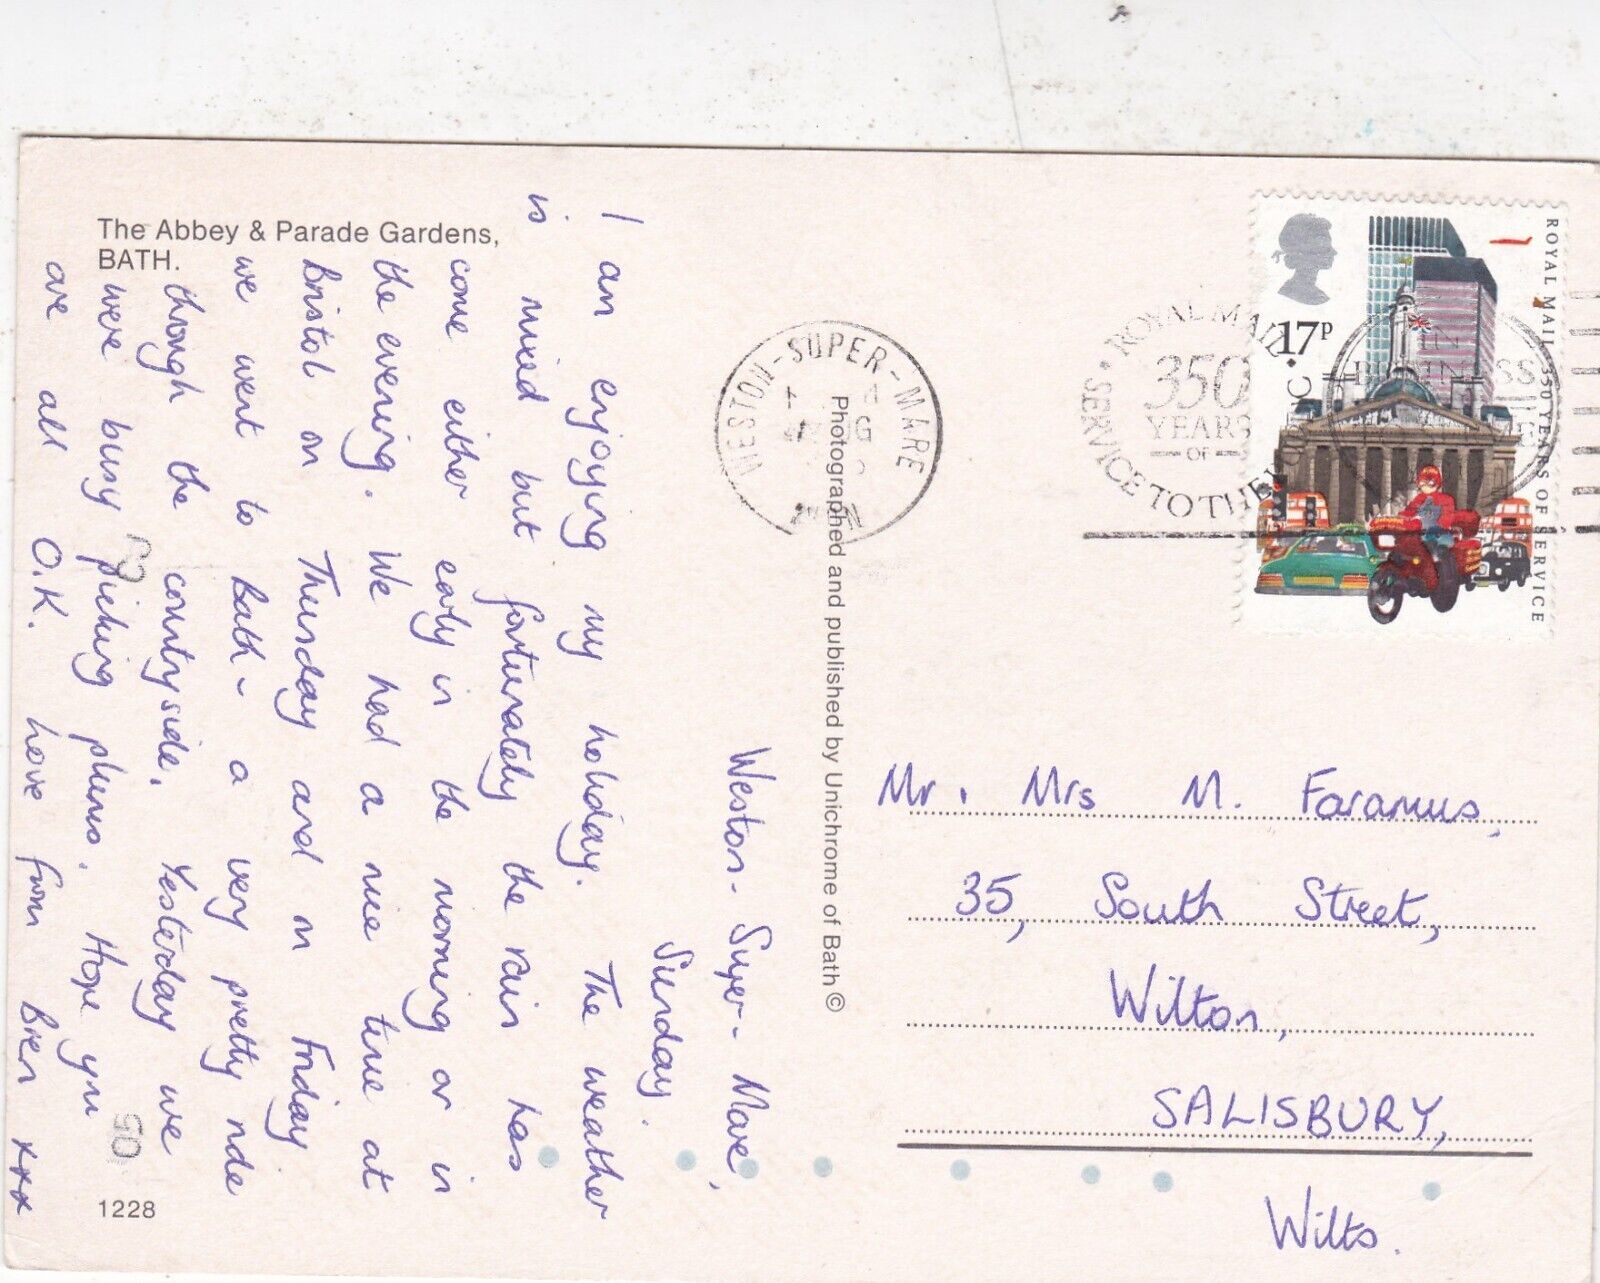 The Abbey & Parade Gardens,
BATH.
Weston-Super-Mare,
Sunday.
I am enjoying my holiday. The weather
is mixed but fortunately the rain has
come either early in the morning or in
the evening. We had a nice time at
Bristol on Thursday and on Friday
we went to Bath - a very pretty ride
through the countryside. Yesterday we
were busy picking plums. Hope you
are all O.K. Love from Bren xxx
1228
Photographed and published by Unichrome of Bath ©
WESTON-SUPER-MARE
ROYAL MAIL
350
YEARS
OF
SERVICE TO THE PUBLIC
17P
ROYAL MAIL 350 YEARS OF SERVICE
Mr. Mrs M. Faramus,
35, South Street,
Wilton,
SALISBURY,
Wilts.